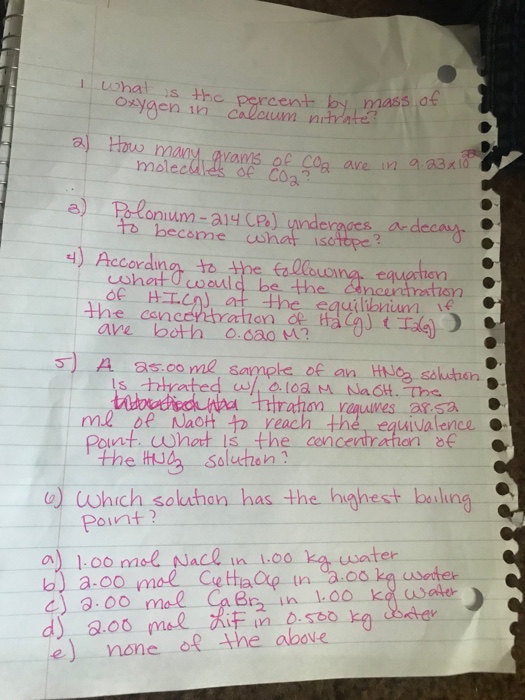 1 What is the percent by mass of
oxygen in calcium nitrate?
2) How many grams of CO2 are in 9.23x10
molecules of CO2?
3) Polonium-214 (Po) undergoes a-decay
to become what isotope?
4) According to the following equation
what would be the concentration
of HI(g) at the equilibrium if
the concentration of H2(g) & I2(g)
are both 0.020 M?
5) A 25.00 ml sample of an HNO3 solution
is titrated w/ 0.102 M NaOH. The
titration requires 28.52
ml of NaOH to reach the equivalence
point. What is the concentration of
the HNO3 solution?
6) Which solution has the highest boiling
point?
a) 1.00 mol NaCl in 1.00 kg water
b) 2.00 mol in 2.00 kg water
c) 2.00 mol CaBr2 in 1.00 kg water
d) 2.00 mol LiF in 0.500 kg water
e) none of the above